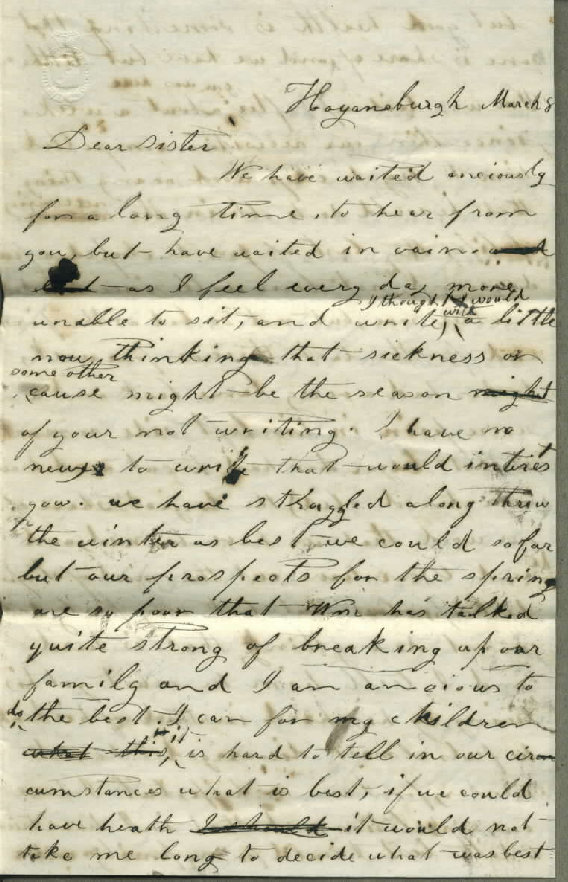 Hoganeburgh March 8
Dear Sister
We have waited anciously
for a long time to hear from
you, but have waited in vain
as I feel every day more
I thought I would
unable to sit, and write, with a little
now, thinking that sickness or
some other
cause might be the reason might
of your not writing. I have no
news to write that would intrest
you. we have strugled along threw
the winter as best we could so far
but our prospects for the spring
are so poor that Wm has talked
quite strong of breaking up our
family and I am ancious to
do the best I can for my children
what this, it is hard to tell in our cir
cumstances what is best, if we could
have heath I should it would not
take me long to decide what was best